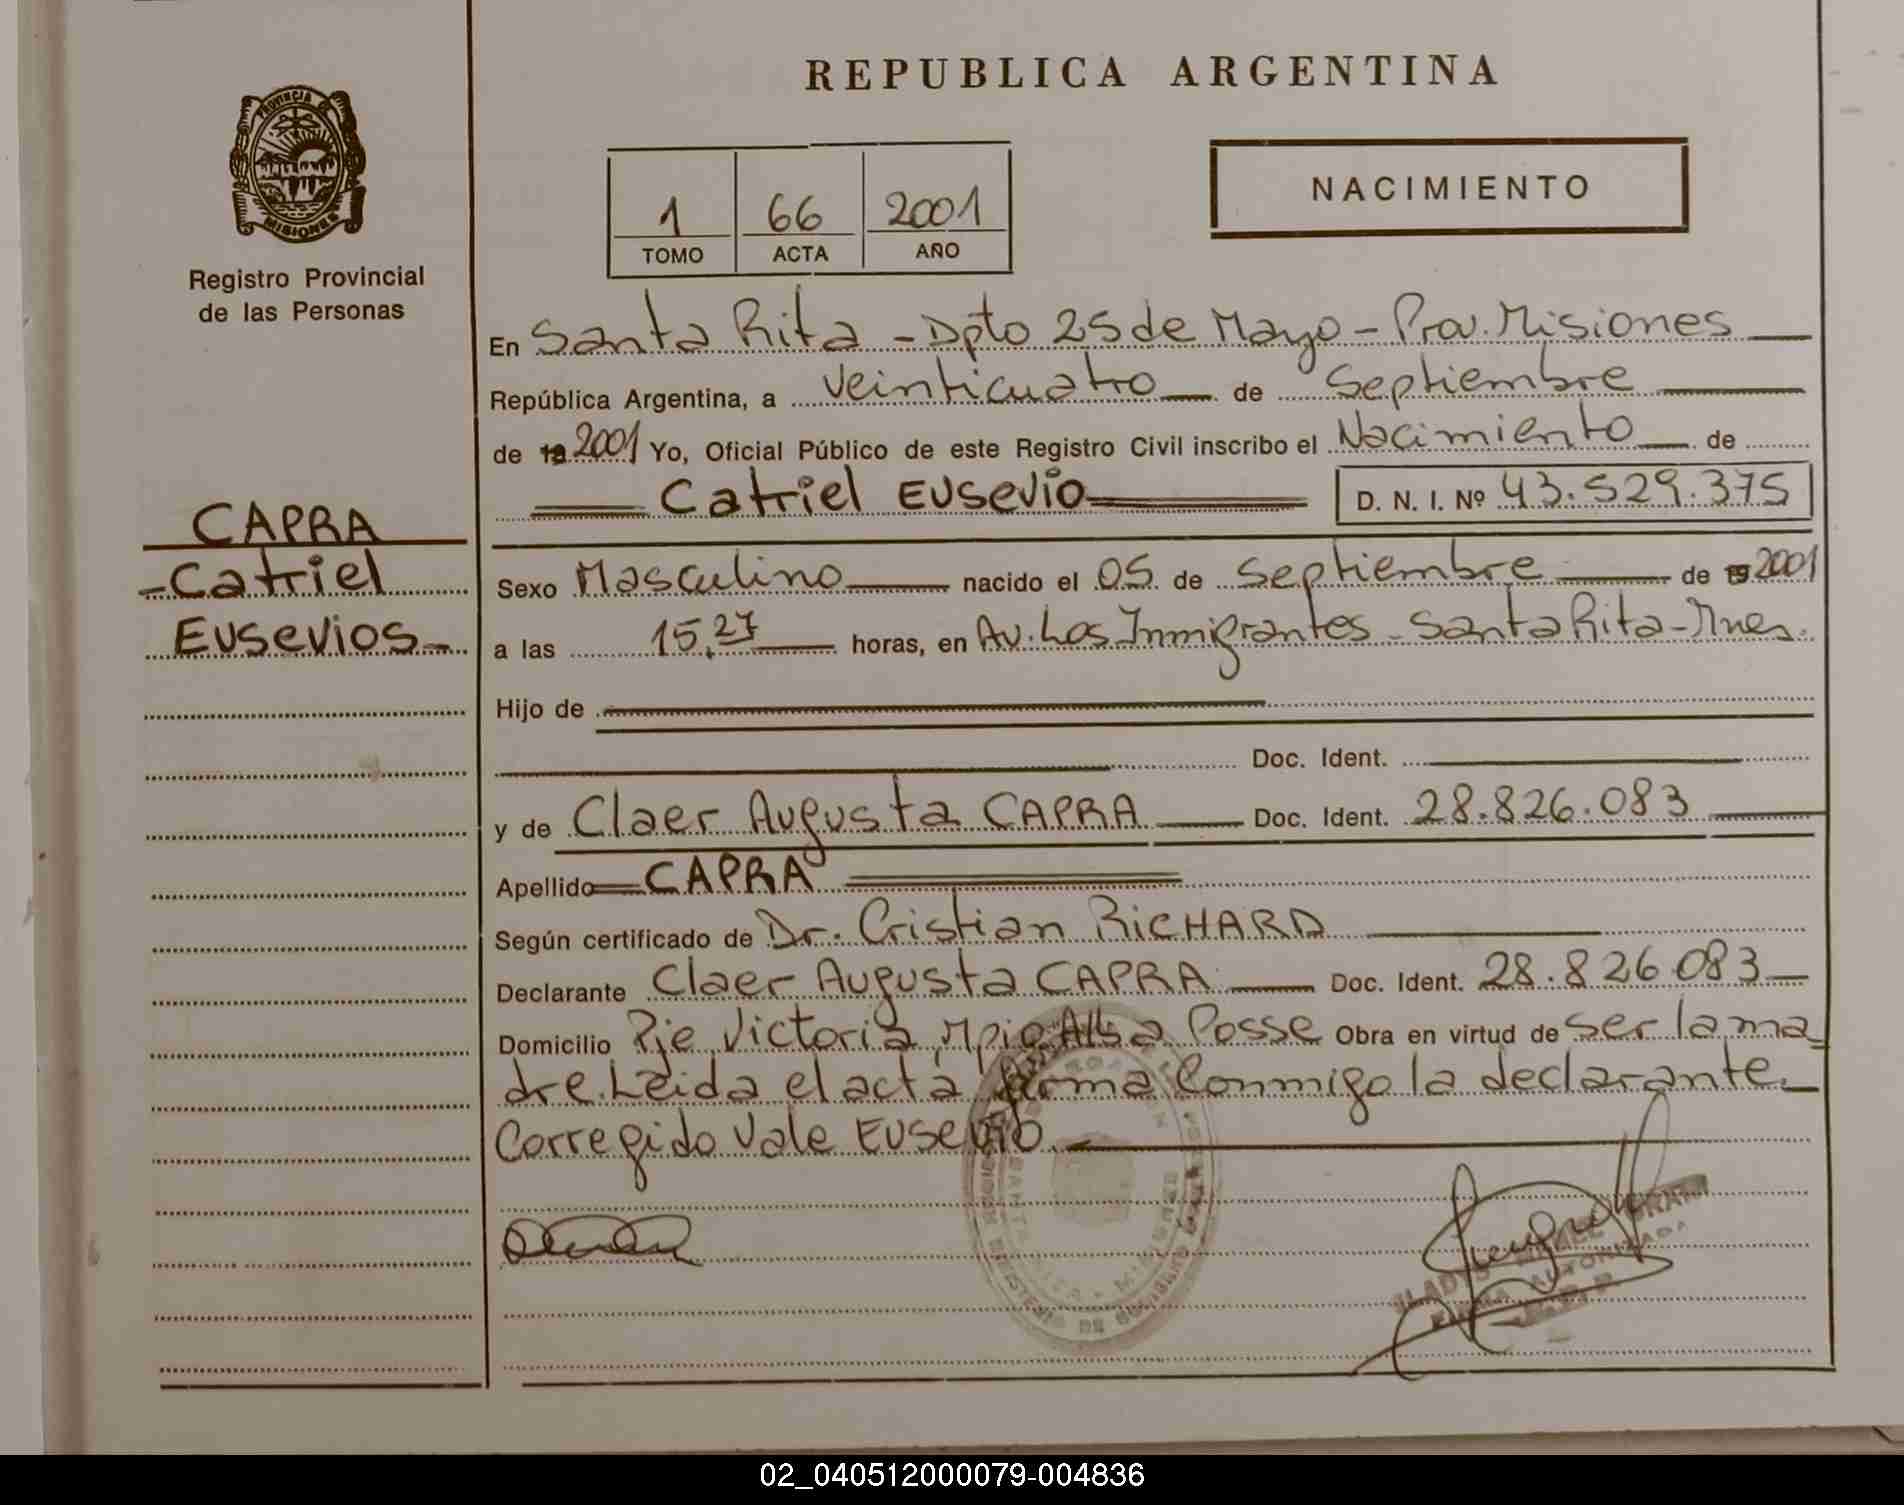 REPUBLICA ARGENTINA
PROVINCIA DE MISIONES
Registro Provincial
de las Personas
1 66 2001
TOMO ACTA AÑO
NACIMIENTO
En Santa Rita - Dpto 25 de Mayo - Prov. Misiones
República Argentina, a veinticuatro de Septiembre
de 19 2001 Yo, Oficial Público de este Registro Civil inscribo el Nacimiento de
Catriel Eusevio D. N. I. Nº 43.529.375
CAPRA
- Catriel
Eusevios -
Sexo Masculino nacido el 05 de Septiembre de 19 2001
a las 15,27 horas, en Av. Los Inmigrantes - Santa Rita - Mnes.
Hijo de
Doc. Ident.
y de Claer Augusta CAPRA Doc. Ident. 28.826.083
Apellido CAPRA
Según certificado de Dr. Cristian RICHARD
Declarante Claer Augusta CAPRA Doc. Ident. 28.826.083
Domicilio Pje Victoria, Mpio Alba Posse Obra en virtud de ser la ma
dre. Leida el acta firma conmigo la declarante.
Corregido Vale Eusevio.
FIRMA AUTORIZADA
02_040512000079-004836